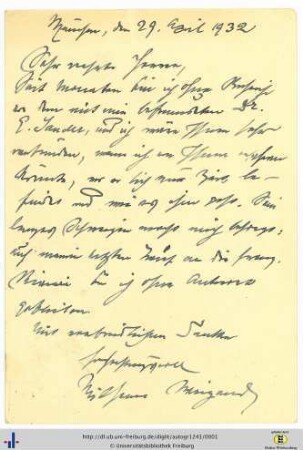 München, den 29. April 1932
Sehr geehrte Herren,
Seit Monaten bin ich ohne Nachricht
von dem mit mir befreundeten Dr.
E. Sander, und ich wäre Ihnen sehr
verbunden, wenn ich von Ihnen erfahren
könnte, wo er sich zur Zeit be-
findet und wie es ihm geht. Sein
langes Schweigen macht mich besorgt.
Auf meinen letzten Brief an die franz.
bin ich ohne Antwort
geblieben.
Mit verbindlichem Danke
hochachtungsvoll
Wilhelm Weigand
http://dl.ub.uni-freiburg.de/diglit/autogr1241/0001
© Universitätsbibliothek Freiburg